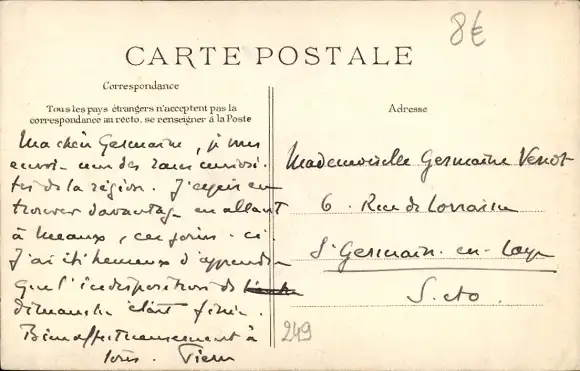 8€
CARTE POSTALE
Correspondance
Tous les pays étrangers n'acceptent pas la
correspondance au recto, se renseigner à la Poste
Ma chère Germaine, je vous
envoie une des rares curiosi-
tés de la région. J'espère en
trouver davantage en allant
à Meaux, ces jours-ci.
J'ai été heureux d'apprendre
que l'indisposition de
dimanche était finie.
Bien affectueusement à
tous. Pierre
Adresse
Mademoiselle Germaine Venot
6. Rue de Lorraine
St Germain-en-Laye
S.eto.
249